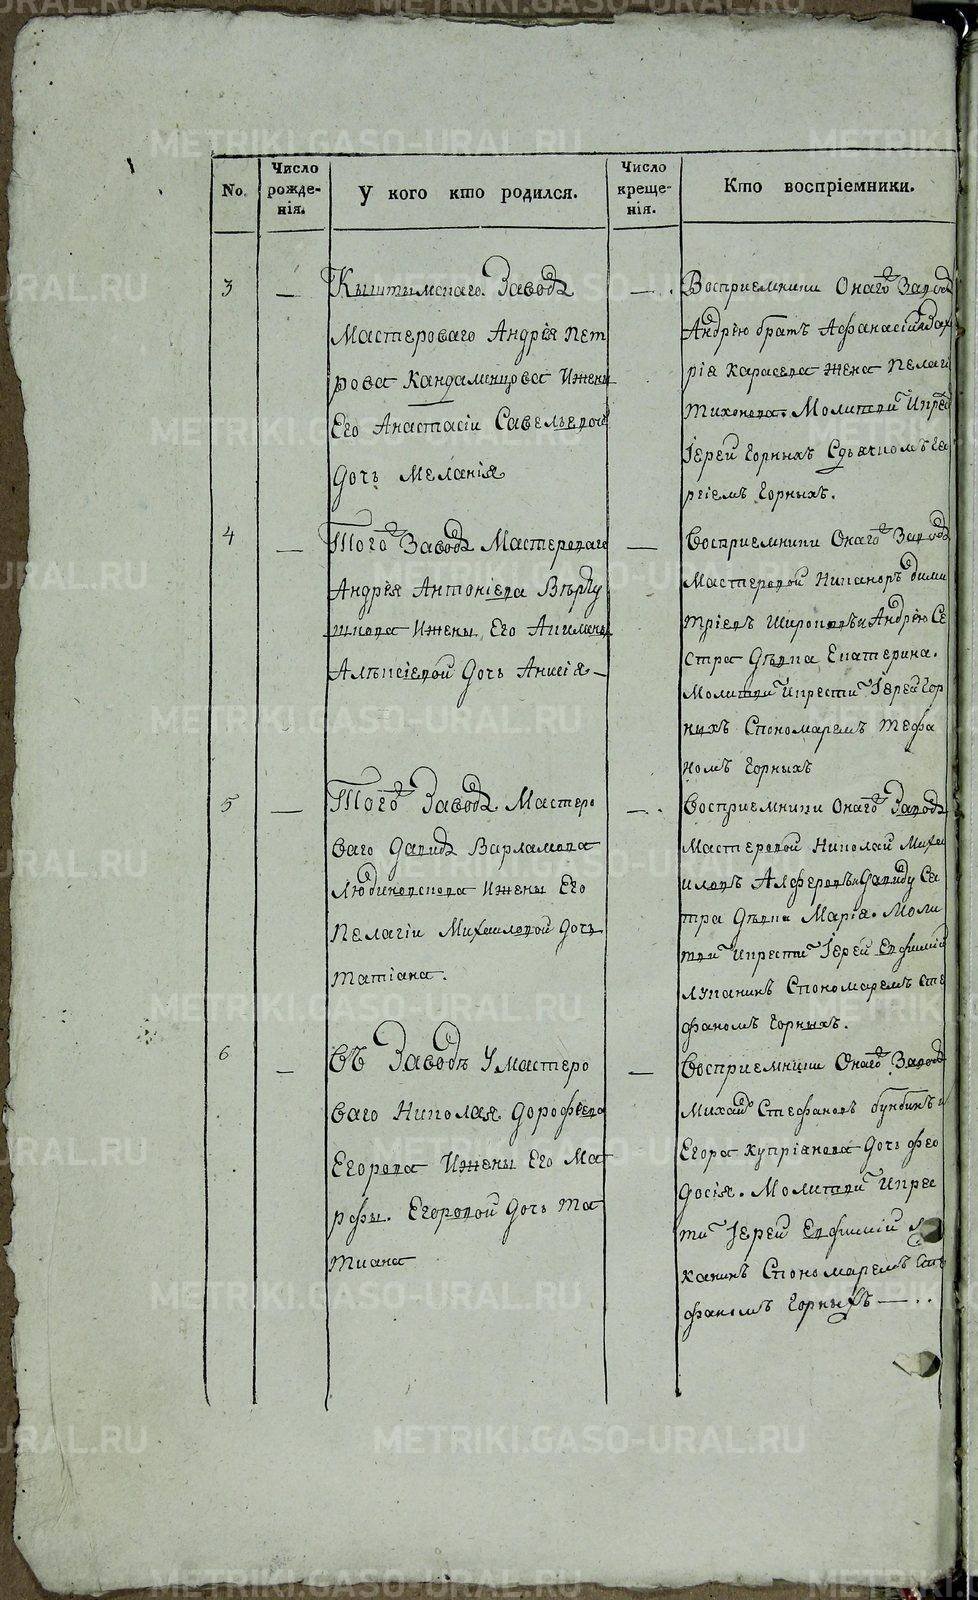 METRIKI.GASO-URAL.RU
No.
Число рожде-нія.
У кого кто родился.
Число креще-нія.
Кто воспріемники.
3
Кыштымскаго Завода
Мастероваго Андрея Пет
рова Кандалинцова Ижены
Его Анастасіи Савельевой
Дочь Меланія
Восприемники Онаго Завода
Андрею братъ Афанасій
рія Карасева жена Пелаги
Тихонова. Молитви Ипре
Іерей Горныхъ Сдьячкомъ Ге
ргіемъ Горныхъ.
4
Того Завода Мастероваго
Андрея Антоніева
Ижены Его Акилины
Алексіевой Дочь Анисія
Восприемники Онаго Завода
Мастеровой Никаноръ Дими
тріевъ Широковъ и Андрею Се
стра Девка Екатерина.
Молитви Ипрести Іерей Гор
ныхъ Спономаремъ Стефа
номъ Горныхъ
5
Того Завода Мастеро
ваго Давида Варламова
Людиновскова Ижены Его
Пелагіи Михаиловой Дочь
Татіана.
Восприемники Онаго Завода
Мастеровой Николай Михаи
иловъ Алферовъ и Давиду Се
тра Девка Марія. Моли
тви Ипрести Іерей Евфимій
Луканинъ Спономаремъ Сте
фаномъ Горныхъ.
6
Въ Заводе У мастеро
ваго Николая Дорофеева
Егорова Ижены Его Ма
рфы. Егоровой Дочь Та
тиана
Восприемники Онаго Завода
Михаило Стефановъ Бунбинъ и
Егора Купріянова Дочь Фео
досія. Молитви Ипрес
ти Іерей Евфимій Лу
канинъ Спономаремъ Сте
фаномъ Горныхъ